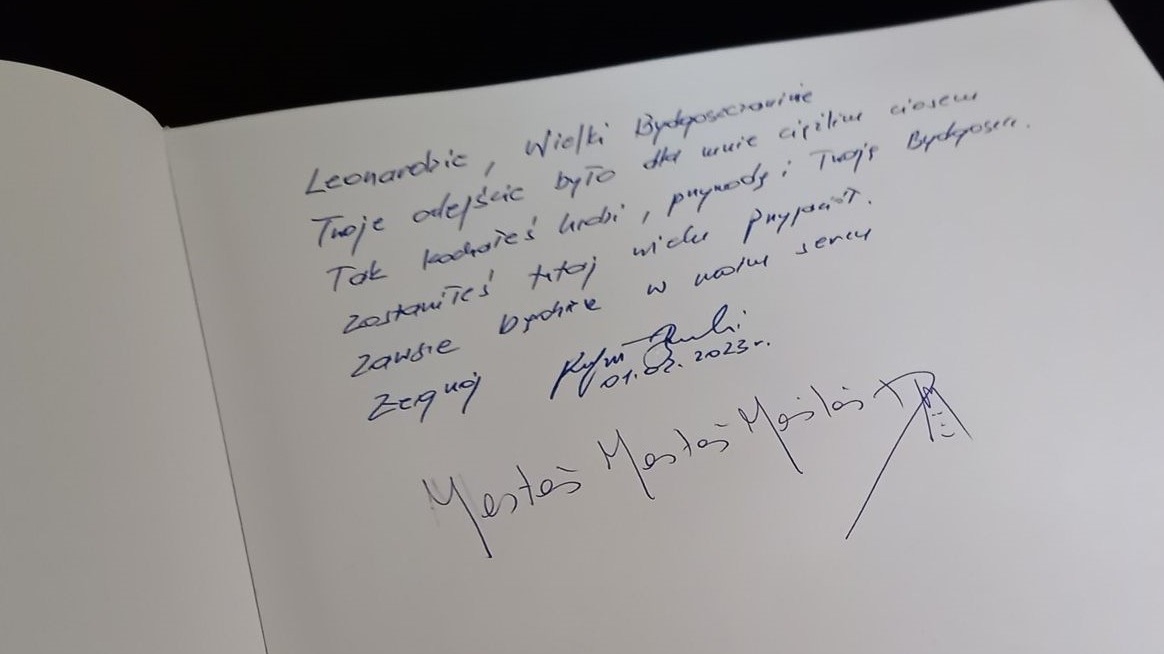 Leonardzie, Wielki Bydgoszczaninie
Twoje odejście było dla mnie ciężkim ciosem
Tak kochałeś ludzi, przyrodę i Twoją Bydgoszcz.
Zostawiłeś tutaj wielu przyjaciół.
Zawsze będziesz w moim sercu
Żegnaj
01.02.2023 r.